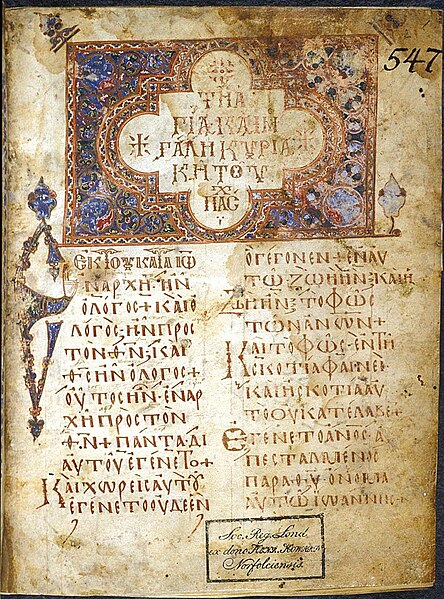 547
ΤΗΑ
ΓΙΑΚΑΙΜ
ΓΑΛΗΚΥΡΙΑ
ΚΗΤΟΥ
Χ
ΠΑC
ΕΚΤΟΥΚΑΤΑΙΩ
ΕΝΑΡΧΗΗΝ
ΟΛΟΓΟC+ΚΑΙΟ
ΛΟΓΟCΗΝΠΡΟC
ΤΟΝΘΝ·ΚΑΙ
ΘCΗΝΟΛΟΓΟC+
ΟΥΤΟCΗΝΕΝΑΡ
ΧΗΠΡΟCΤΟΝ
ΘΝ+ΠΑΝΤΑΔΙ
ΑΥΤΟΥΕΓΕΝΕΤΟ+
ΚΑΙΧΩΡΕΙCΑΥΤΟΥ
ΕΓΕΝΕΤΟΟΥΔΕΕΝ
ΟΓΕΓΟΝΕΝ+ΕΝΑΥ
ΤΩΖΩΗΗΝ·ΚΑΙΗ
ΖΩΗΗΝΤΟΦΩC
ΤΩΝΑΝΩΝ+
ΚΑΙΤΟΦΩCΕΝΤΗ
CΚΟΤΙΑΦΑΙΝΕΙ
ΚΑΙΗCΚΟΤΙΑΑΥ
ΤΟΟΥΚΑΤΕΛΑΒΕ+
ΕΓΕΝΕΤΟΑΝΟCΑ
ΠΕCΤΑΛΜΕΝΟC
ΠΑΡΑΘΥ·ΟΝΟΜΑ
ΑΥΤΩΙΩΑΝΝΗC+
Soc. Reg. Lond.
ex dono HENR. HOWARD
Norfolciensis